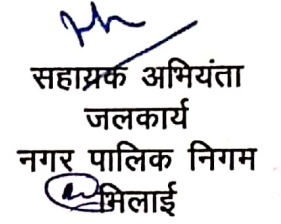 सहायक अभियंता
जलकार्य
नगर पालिक निगम
भिलाई